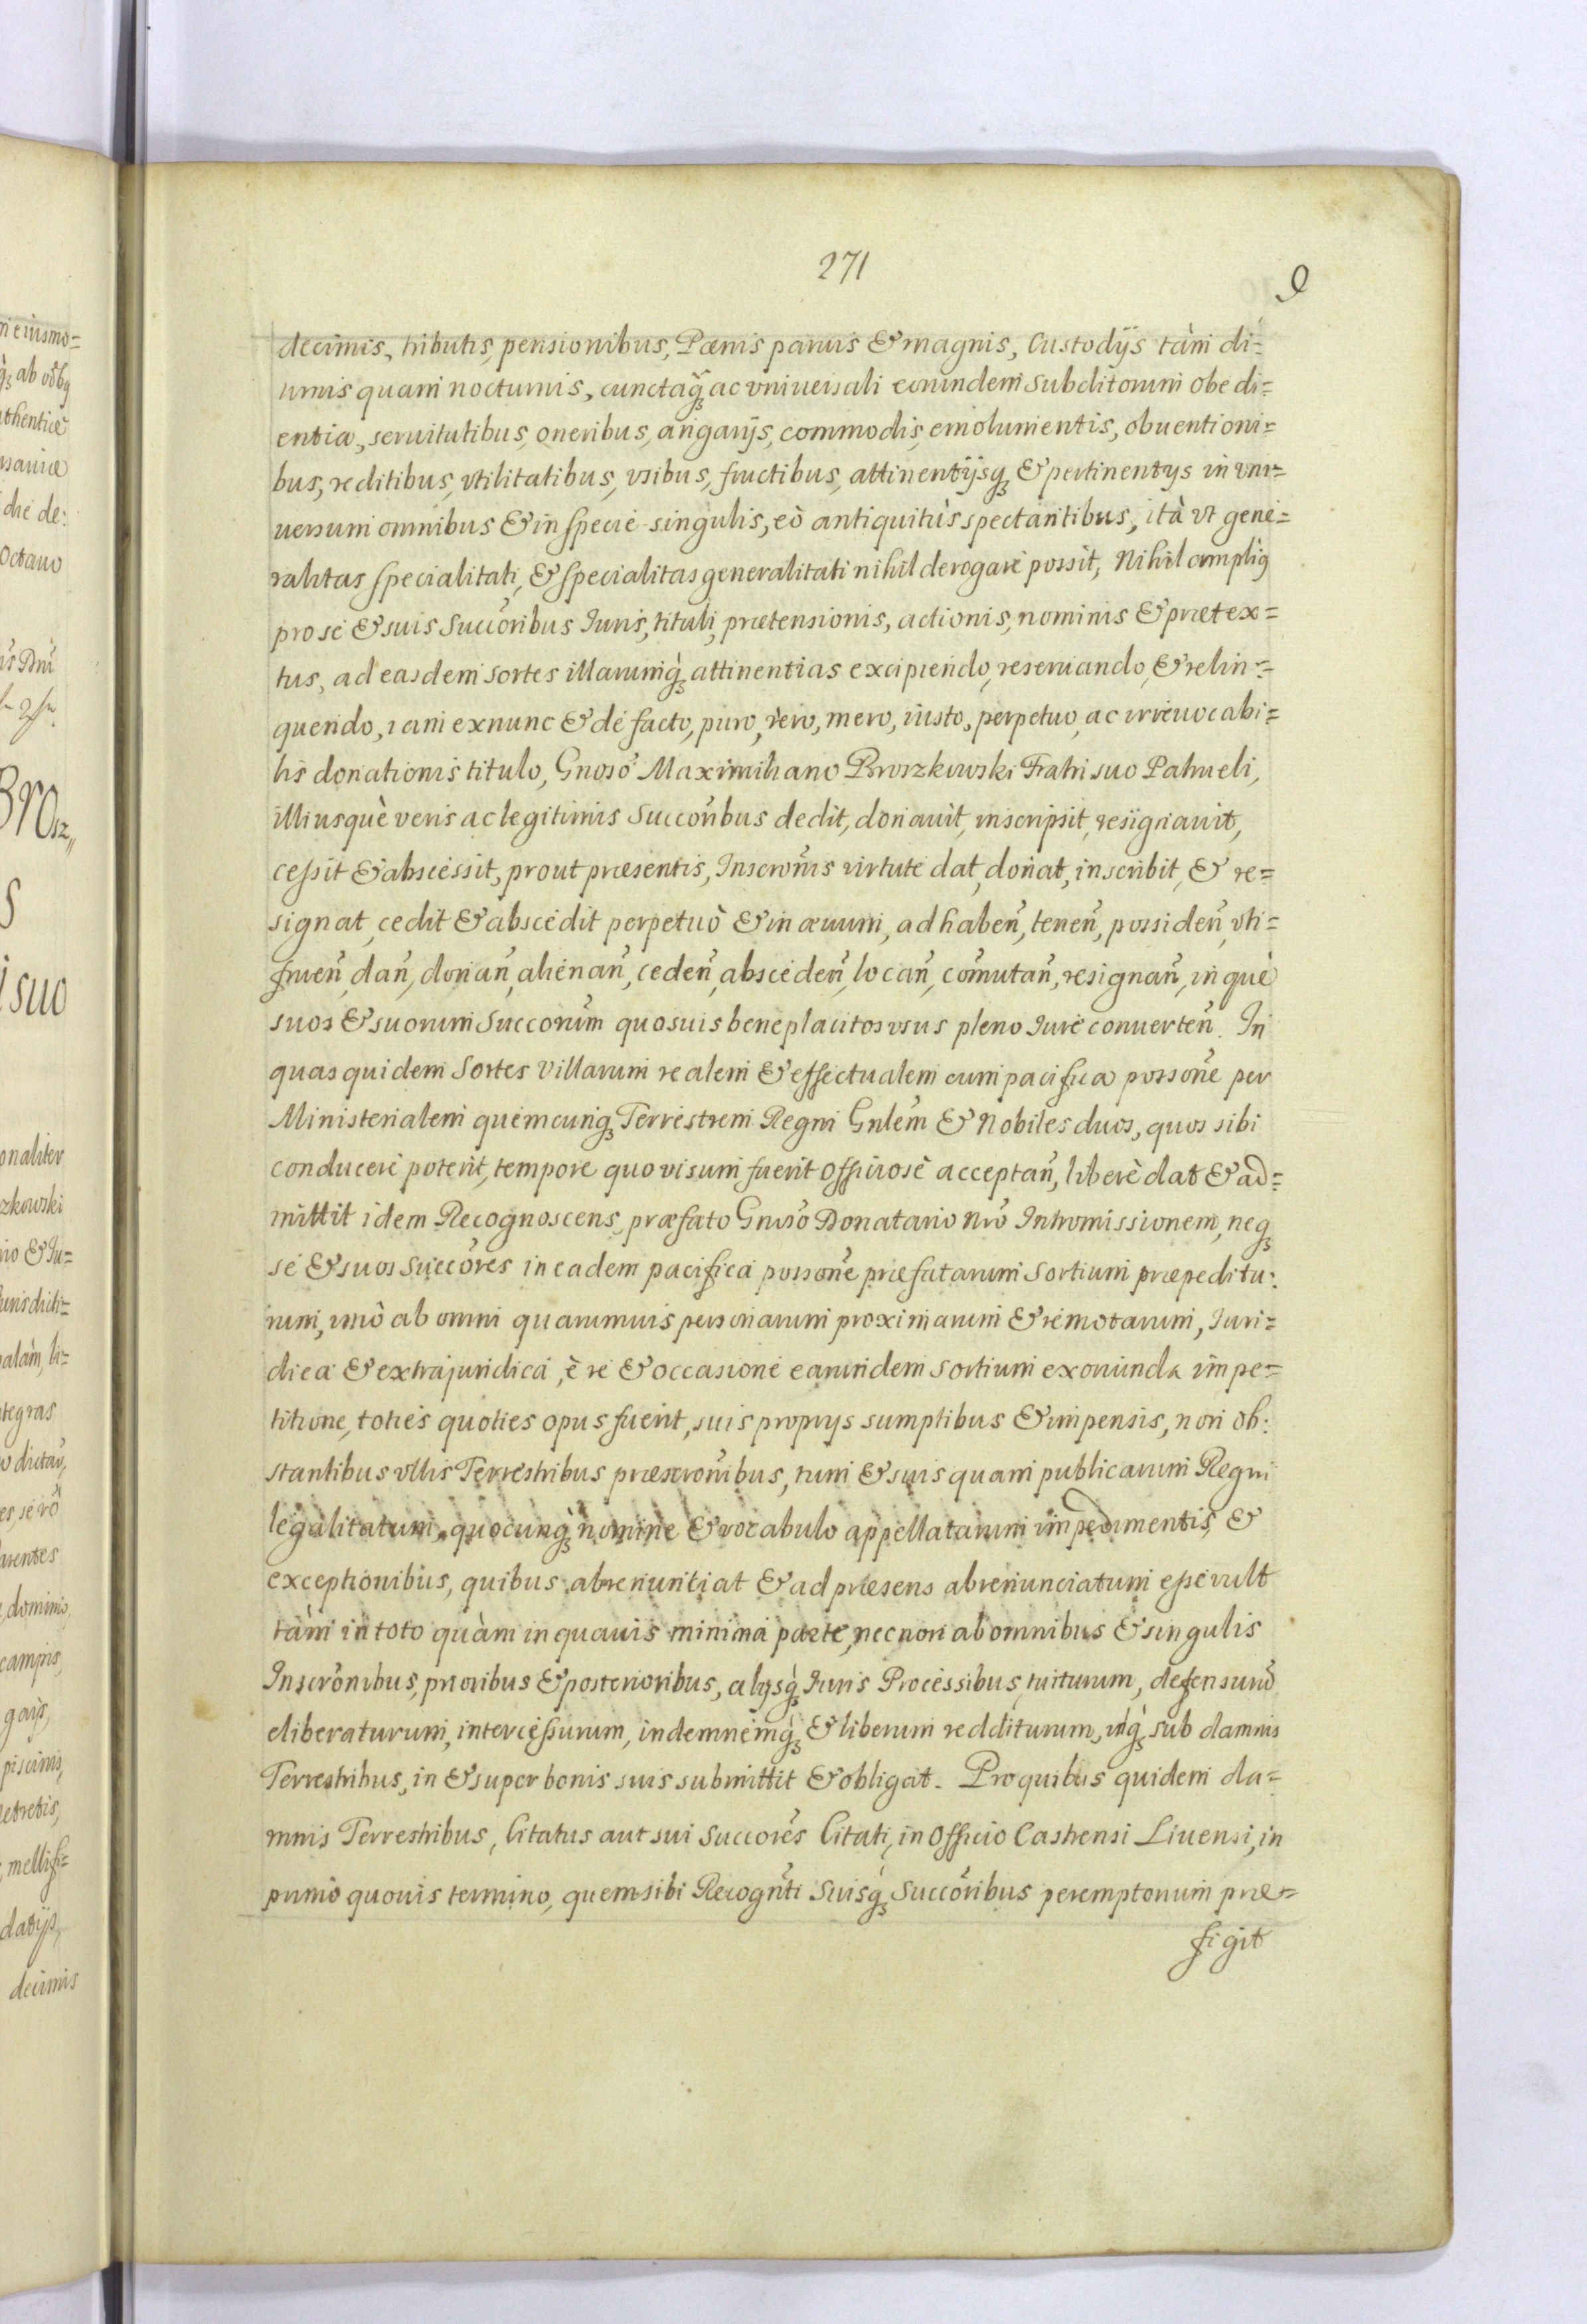 271
9
decimis, tributis, pensionibus, Pænis paruis & magnis, Custodÿs tàm di=
urnis quam nocturnis, cunctaq̃ ac vniuersali eorundem subditorum obedi=
entia, seruitutibus, oneribus, angarÿs, commodis, emolumentis, obuentioni=
bus, reditibus, vtilitatibus, vsibus, fructibus, attinentÿsq, & pertinentÿs in vni=
uersum omnibus & in specie singulis, eò antiquitùs spectantibus, ità vt gene=
ralitas specialitati, & specialitas generalitati nihil derogare possit, Nihil ampliq
pro se & suis Succõribus Iuris, tituli, prætensionis, actionis, nominis & prætex=
tus, ad easdem sortes illarumq̀ attinentias excipiendo, reseruando, & relin=
quendo, iam exnunc & de facto, puro, vero, mero, iusto, perpetuo, ac irreuocabi=
lis donationis titulo, Gnoso Maximiliano Broszkowski Fratri suo Patrueli,
illiusquè veris ac legitimis Succoribus dedit, donauit, inscripsit, resignauit,
cessit & abscessit, prout præsentis, Inscronis virtute dat, donat, inscribit, & re=
signat, cedit & abscedit perpetuò & in æuum, ad habeñ, teneñ, possideñ, vti=
frueñ, dañ, donañ, alienañ, cedeñ, abscedeñ, locañ, com̃utañ, resignañ, in què
suos & suorum Succorum̃ quosuis beneplacitos vsus pleno Iure conuerteñ. In
quas quidem Sortes Villarum realem & effectualem cum pacifica possoñe per
Ministerialem quemcunq, Terrestrem Regni Gnlem̃ & Nobiles duos, quos sibi
conducere poterit, tempore quo visum fuerit officiosè acceptañ, liberè dat & ad=
mittit idem Recognoscens, præfato Gnoso Donatario Nrõ Intromissionem, neq
se & suos Succõres in eadem pacifica possoñe præfatarum Sortium præpeditu:
rum, imò ab omni quarumuis personarum proximarum & remotarum, Iuri=
dica & extrajuridica, è re & occasione earundem Sortium exoriunda impe=
titione, toties quoties opus fuerit, suis proprÿs sumptibus & impensis, non ob:
stantibus vllis Terrestribus præscronibus, tum & suis quam publicarum Regni
legalitatum, quocunq̀ nomine & vocabulo appellatarum impedimentis, &
exceptionibus, quibus abrenuntiat & ad præsens abrenunciatum esse vult
tàm in toto quàm in quauis minima parte, necnon ab omnibus & singulis
Inscrõnibus, prioribus & posterioribus, alÿsq̀ Iuris Processibus, tuiturum, defensurũ
eliberaturum, intercessurum, indemnemq̀ & liberum redditurum, idq̀ sub damnis
Terrestribus, in & super bonis suis submittit & obligat. Pro quibus quidem da=
mnis Terrestribus, Citatus aut sui Succores Citati, in Officio Castrensi Liuensi, in
primo quouis termino, quem sibi Recognti Suisq̀ Succõribus peremptorium præ=
figit